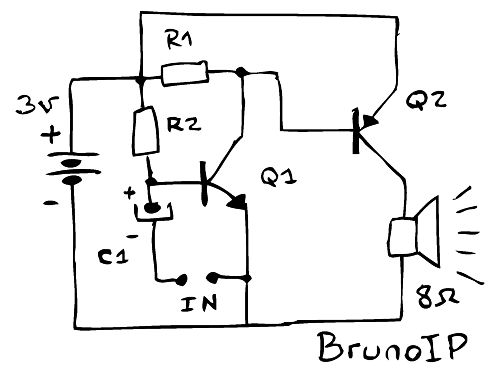 R1
3v
Q2
+
R2
Q1
+
-
-
C1
IN
8Ω
BrunoIP